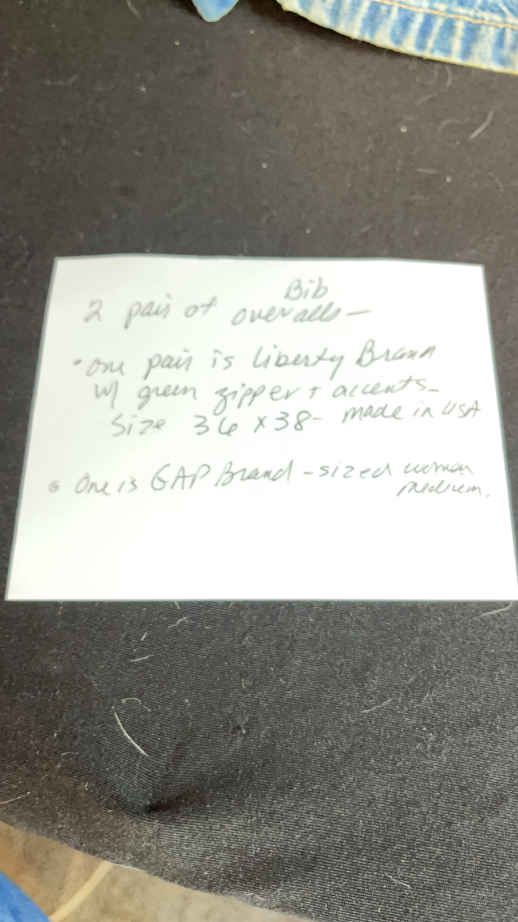 2 pair of Bib overalls—
• one pair is Liberty Brand
w/ green zipper + accents—
Size 36 x 38- made in USA
• One is GAP Brand - sized women
medium.